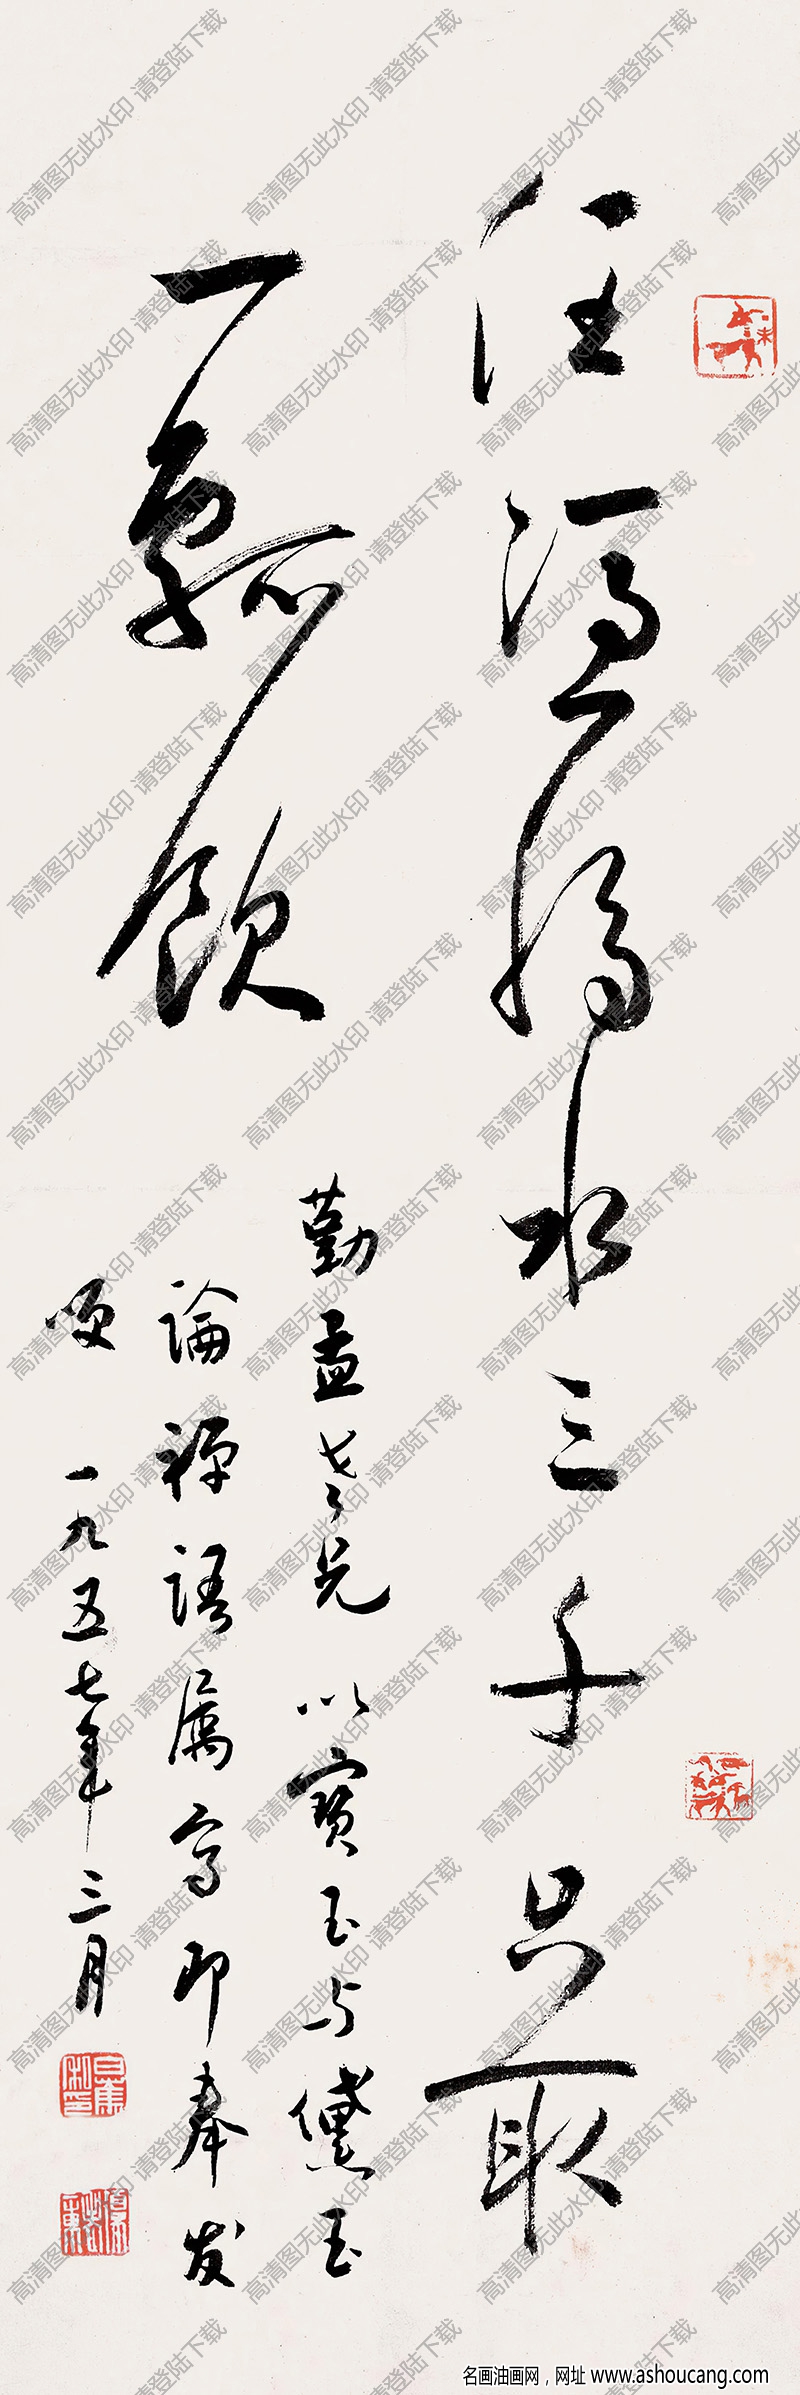 任憑弱水三千只取
一瓢飲
勤孟老兄以寶玉与黛玉
論禪語屬寫即奉发
一九五七年三月
高清图无此水印 请登陆下载
名画油画网，网址 www.ashoucang.com